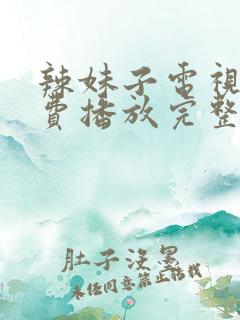 辣妹子電視
費播放完整
肚子沒墨
未任同意禁止轉載